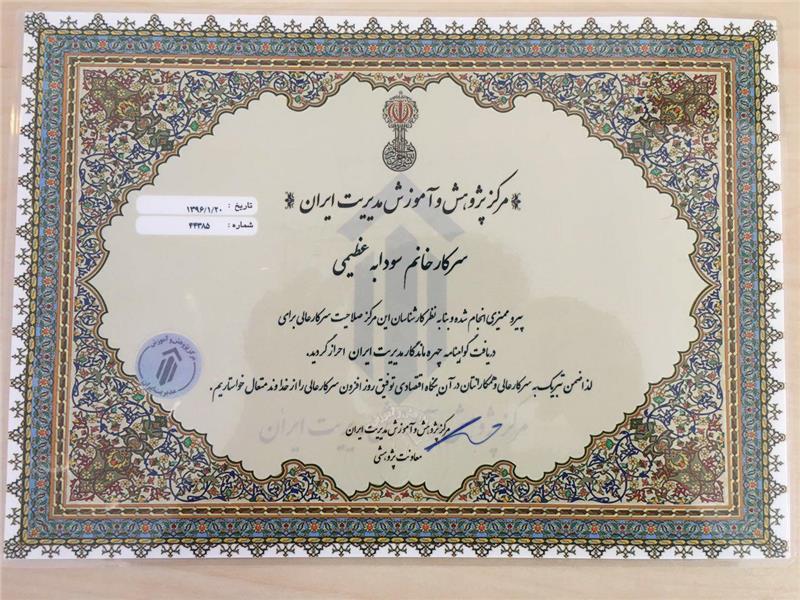 مرکز پژوهش و آموزش مدیریت ایران
تاریخ : ۱۳۹۶/۱/۲۰
شماره : ۴۴۳۸۵
سرکار خانم سودابه عظیمی
پیرو ممیزی انجام شده و بنا به نظر کارشناسان این مرکز صلاحیت سرکار عالی برای
دریافت گواهینامه چهره ماندگار مدیریت ایران احراز گردید.
لذا ضمن تبریک به سرکار عالی و همکارانتان در آن بنگاه اقتصادی توفیق روز افزون سرکار عالی را از خداوند متعال خواستاریم .
مرکز پژوهش و آموزش مدیریت ایران
مرکز پژوهش و آموزش مدیریت ایران
معاونت پژوهشی
مرکز پژوهش و آموزش